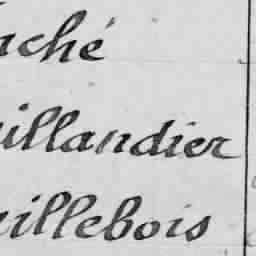 aché
illandier
illebois